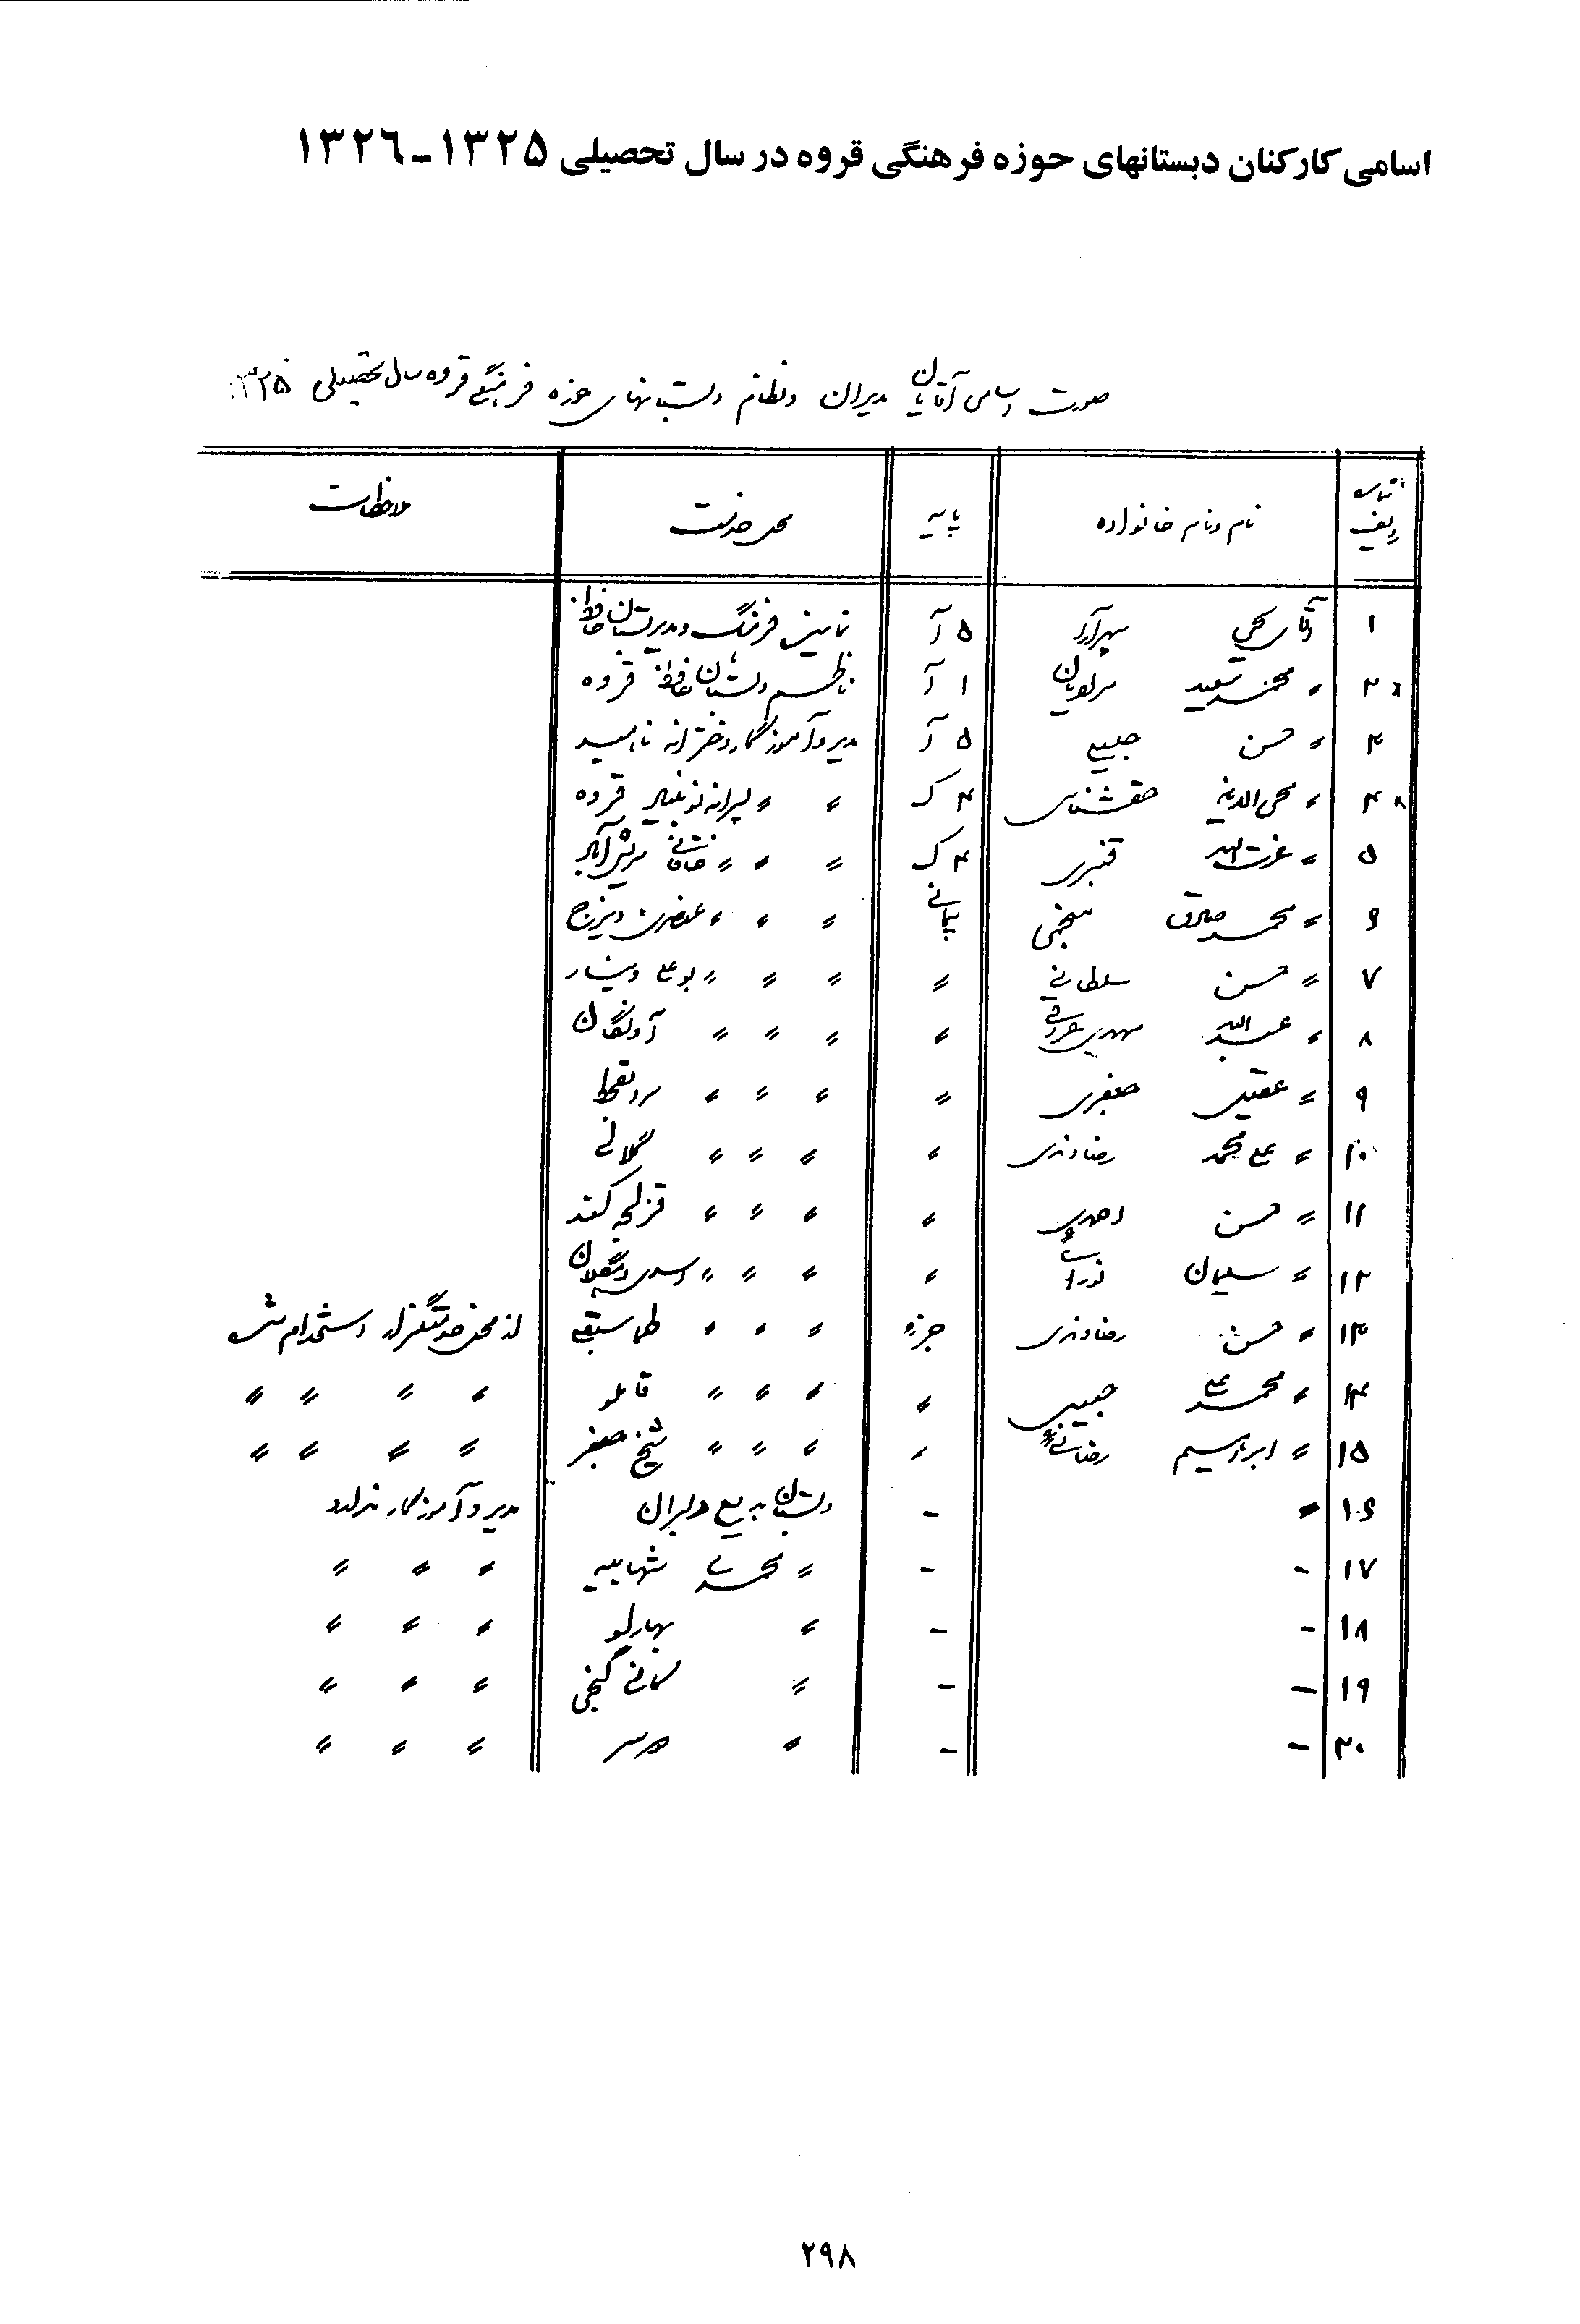 اسامی کارکنان دبستانهای حوزه فرهنگی قروه در سال تحصیلی ۱۳۲۵-۱۳۲۶
صورت اسامی آقایان مدیران و نظام دبستانهای حوزه فرهنگی قروه سال تحصیلی ۱۳۲۵
ردیف نام و نام خانواده پایه محل خدمت ملاحظات
۱ آقای یحیی ۵ آ نماینده فرهنگ و مدیر دبستان حافظ
۲ " محمد سعید ۱ آ ناظم دبستان حافظ قروه
۳ " حسن حبیبی ۵ آ مدیر و آموزگار دخترانه ناامید
۴ " محی الدین حقشناس ۴ ک " " پسرانه نوبنیاد قروه
۵ " عزت الله قنبری ۴ ک " " " خاقانی
۶ " محمد صادق پیمانی " " " عنصری ویزج
۷ " حسن سلطانی " " " " بوعلی وینسار
۸ " عبدالله " " " " آونگان
۹ " عقیل جعفری " " " "
۱۰ " علی محمد رضاوندی " " " " گیلانی
۱۱ " حسن احمدی " " " " قزلجه کند
۱۲ " سلیمان " " " " اسدی
۱۳ " حسن رضاوندی جزء " " " طهماسبقلی از محل خدمتگزار استخدام شده
۱۴ " محمد علی حبیبی " " " " قاملو " " " "
۱۵ " ابراهیم رضائی " " " " شیخ جعفر " " " "
۱۶ " - دبستان بدیع دلبران مدیر و آموزگار ندارد
۱۷ - - " شهابیه " " "
۱۸ - - " بهارلو " " "
۱۹ - - " " " "
۲۰ - - " " " "
۲۹۸